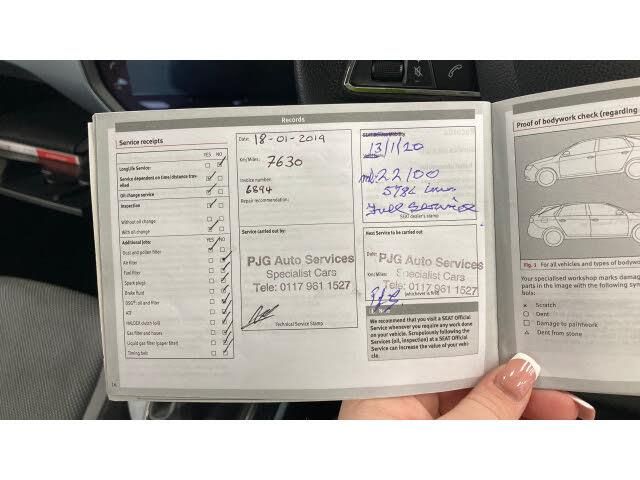 Records
Service receipts
YES NO
LongLife Service:
Service dependent on time/distance travelled
Oil change service
Inspection
Without oil change
With oil change
Additional jobs: YES NO
Dust and pollen filter
Air filter
Fuel filter
Spark plugs
Brake fluid
DSG®: oil and filter
ATF
HALDEX clutch (oil)
Gas filter and hoses
Liquid gas filter (paper filter)
Timing belt
16
Date: 18-01-2019
Km/Miles: 7630
Invoice number:
6894
Repair recommendation:
Service carried out by:
PJG Auto Services
Specialist Cars
Tele: 0117 961 1527
Technical Service Stamp
13/1/20
22100
Full Service
SEAT dealer's stamp
Next Service to be carried out
Date:
PJG Auto Services
Km/Miles:
Specialist Cars
Tele: 0117 961 1527
(whichever is first)
We recommend that you visit a SEAT Official
Service whenever you require any work done
on your vehicle. Scrupulously following the
Services (oil, inspection) at a SEAT Official
Service can increase the value of your vehi-
cle.
Proof of bodywork check (regarding
Fig. 1 For all vehicles and types of bodyw
Your specialised workshop marks damag
parts in the image with the following sym
bols:
x Scratch
Dent
Damage to paintwork
Dent from stone